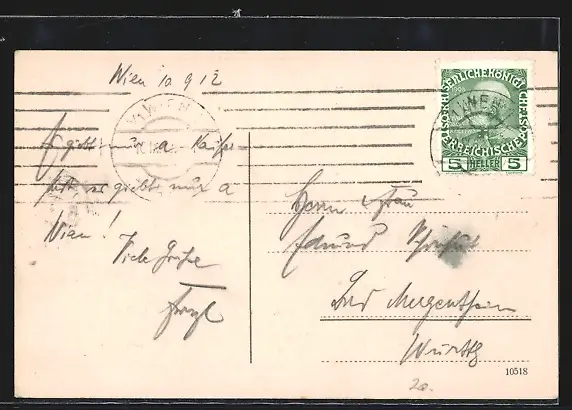 Wien 10 9 12
Es giebt nur a Kaiser
stadt es giebt nur a
Wien!
Viele Grüße
Herrn Frau
Eduard
Bad Mergentheim
Württbg
WIEN
KAISERLICHE KÖNIGLICHE ÖSTERREICHISCHE POST
5 HELLER 5
10518
20.-